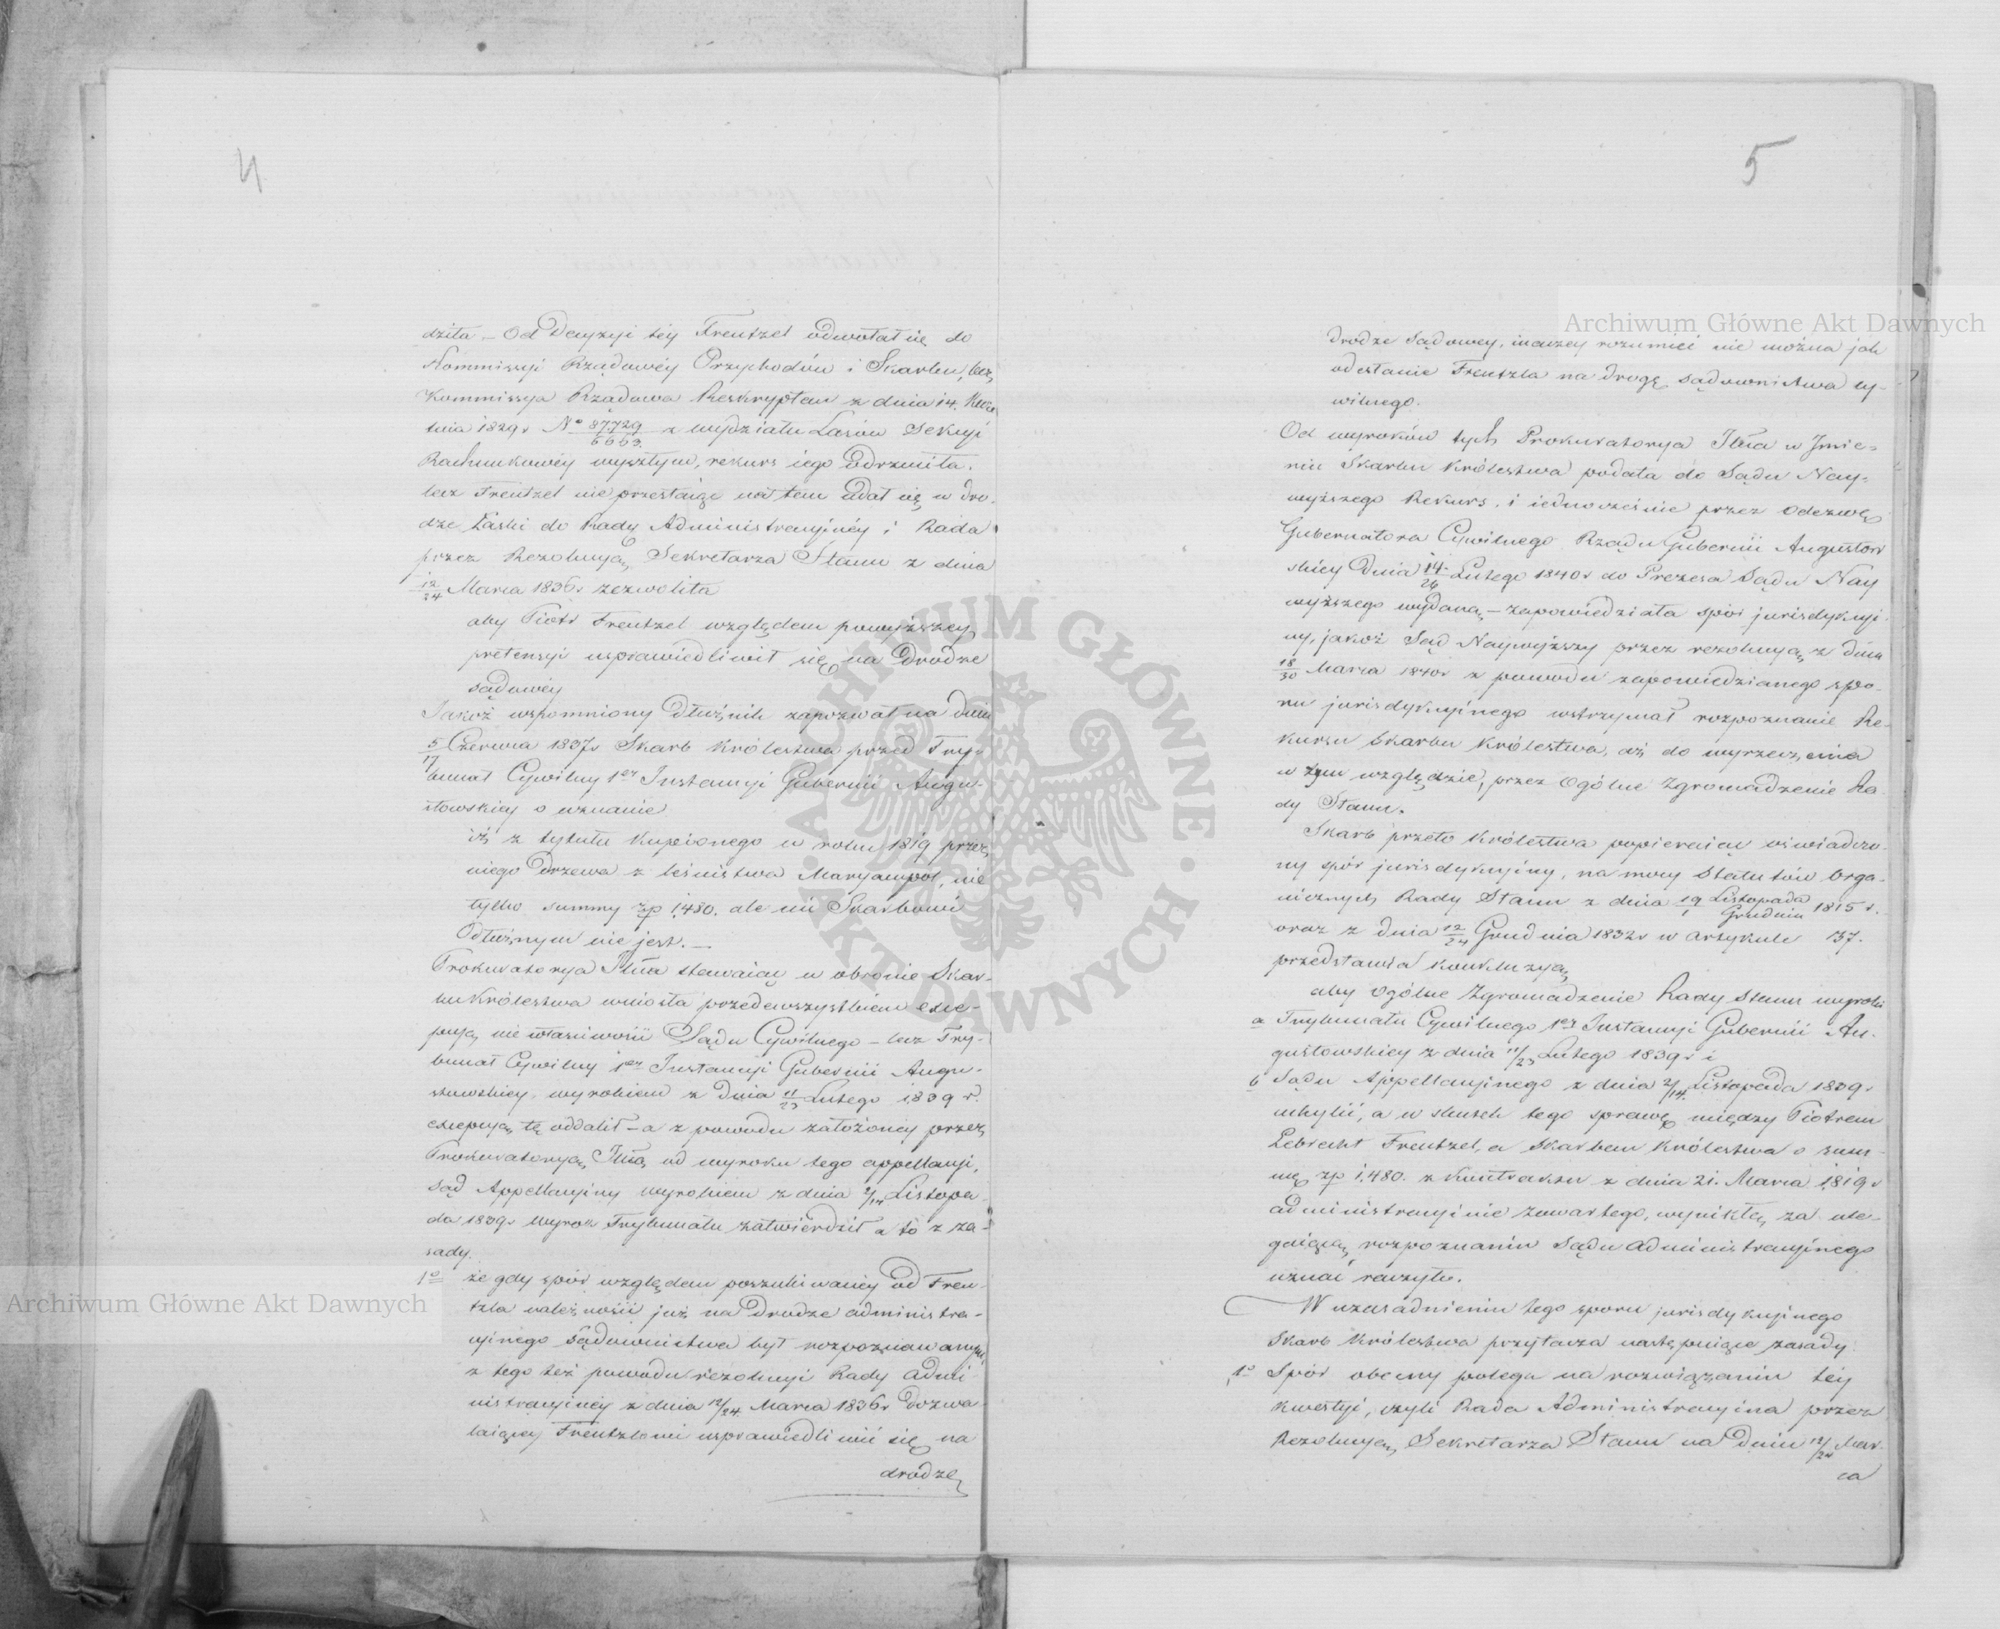 4
dziła – Od Decyzyi téy Frentzel odwołał się do
Kommissyi Rządowéy Przychodów i Skarbu, lecz
Kommissya Rządowa Reskryptem z dnia 14. Kwie
tnia 1829 r N° 87729/6669 z wydziału Lasów Sekcyi
Rachunkowéy wyszłym, rekurs iego odrzuciła.
lecz Frentzel nie przestaiąc na tem udał się w dro-
dze Łaski do Rady Administracyinéy i Rada
przez Rezolucyą Sekretarza Stanu z dnia
12/24 Marca 1836 r zezwoliła
aby Piotr Frentzel względem powyższey
pretensyi usprawiedliwił się na Drodze
Sądowéy
Jakoż wspomniony Dłużnik zapozwał na dniu
5/17 Czerwca 1837 r Skarb Królestwa przed Try-
bunał Cywilny 1ey Instancyi Gubernii Augu-
stowskiey o uznanie
iż z tytułu kupionego w roku 1819 przez
niego Drzewa z leśnictwa Maryampol, nie
tylko summy zp 1,480. ale nic Skarbowi
Odłużnym nie jest. –
Prokuratorya Jlna stawaiąc w obronie Skar-
bu Królestwa wniosła przedewszystkiem exce-
pcyą nie właściwości Sądu Cywilnego – lecz Try-
bunał Cywilny 1ey Instancyi Gubernii Augu-
stowskiey wyrokiem z Dnia 11/23 Lutego 1839 r.
excepcyą tę oddalił – a z powodu założoney przez
Prokuratoryą Jlną od wyroku tego appellacyi,
Sąd Appellacyiny wyrokiem z dnia 2/14 Listopa-
da 1839 r Wyrok Trybunału zatwierdził a to z za-
sady.
1° że gdy spór względem poszukiwanéy od Fren-
tzla należności już na Drodze administra-
cyinego Sądownictwa był rozpoznawanym,
z tego też powodu rezolucyi Rady Admi
nistracyinéy z dnia 12/24 Marca 1836 r Dozwa
laiącey Frentzlowi usprawiedliwić się na
drodze
5
drodze Sądowey, inaczey rozumieć nie można jak
odesłanie Frentzla na drogę sądownictwa cy-
wilnego.
Od wyroków tych Prokuratorya Jlna w Jmie-
niu Skarbu Królestwa podała do Sądu Nay-
wyższego Rekurs, i iednocześnie przez Odezwę
Gubernatora Cywilnego Rządu Gubernii Augustow
skiey Dnia 14/26 Lutego 1840 r do Prezesa Sądu Nay
wyższego wydaną – zapowiedziała spór jurisdykcyi
ny, jakoż Sąd Naywyższy przez rezolucyą z dnia
18/30 Marca 1840 r z powodu zapowiedzianego spo-
ru jurisdykcyinego wstrzymał rozpoznanie Re-
kursu Skarbu Królestwa, aż do wyrzeczenia
w tym względzie, przez Ogólne Zgromadzenie Ra
dy Stanu.
Skarb przeto Królestwa popieraiąc oświadczo-
ny spór jurisdykcyiny, na mocy Statutów Orga-
nicznych Rady Stanu z dnia 19 Listopada/1 Grudnia 1815 r.
oraz z dnia 12/24 Grudnia 1832 r w artykule 37.
przedstawia konkluzyą
aby Ogólne Zgromadzenie Rady Stanu wyroki
a Trybunału Cywilnego 1ey Instancyi Gubernii Au-
gustowskiey z dnia 11/23 Lutego 1839 r i
b Sądu Appellacyinego z dnia 2/14. Listopada 1839 r
uchylić, a w skutek tego sprawę między Piotrem
Lebrecht Frentzel, a Skarbem Królestwa o sum-
mę zp 1,480. z kontraktu z dnia 21. Marca 1819 r
administracyinie zawartego, wynikłą za ule-
gaiącą rozpoznaniu Sądu administracyinego
uznać raczyło.
W uzasadnieniu tego sporu jurisdykcyinego
Skarb Królestwa przytacza następuiące zasady
1° Spór obecny polega na rozwiązaniu téy
kwestyi, czyli Rada Administracyina przez
Rezolucyą Sekretarza Stanu na Dniu 12/24 Mar-
ca
Archiwum Główne Akt Dawnych
Archiwum Główne Akt Dawnych
ARCHIWUM GŁÓWNE · AKT DAWNYCH ·